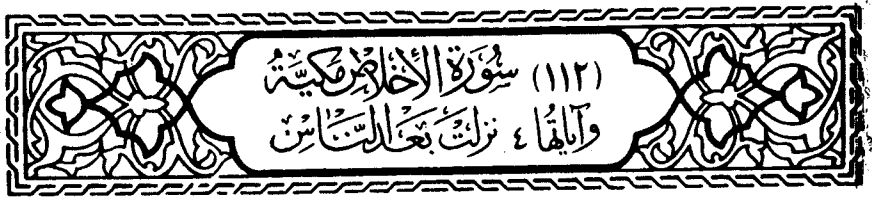 (١١٢) سُورَة الإِخْلَاصِ مَكيَّة
وَآيَاتُهَا ٤ نَزَلَتْ بَعْدَ النَّاسْ